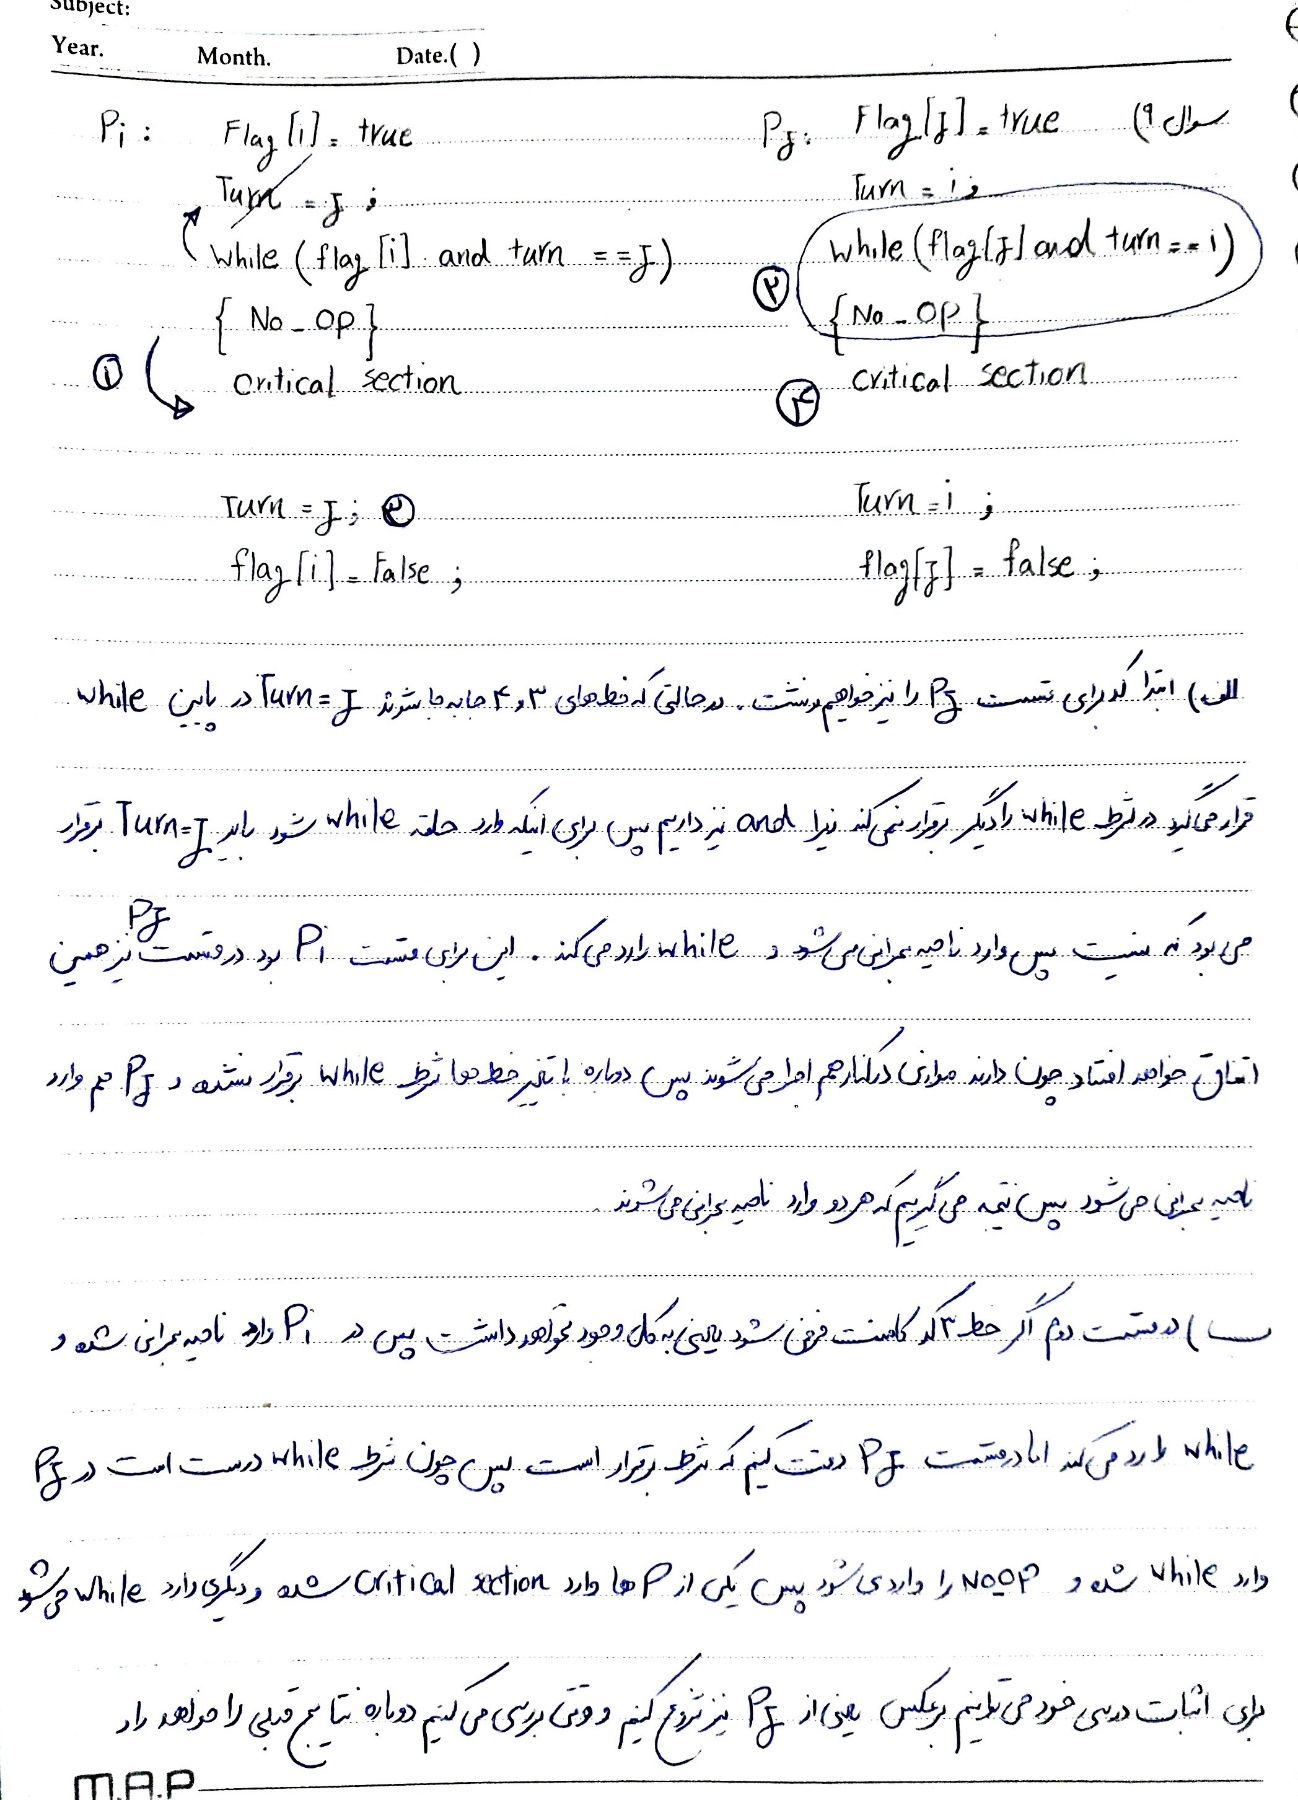 Subject:
Year. Month. Date.( )
سوال ۹)
Pi : Flag [i] = true
Pj: Flag[j] = true
Turn = j ;
Turn = i ;
while ( flag [i] and turn == j )
while (flag[j] and turn == i)
{ No - op }
۲ { No - op }
۱ critical section
۴ critical section
Turn = j ; ۳
Turn = i ;
flag [i] = False ;
flag[j] = false ;
الف) ابتدا کد برای قسمت Pj را نیز خواهیم نوشت . در حالتی که خط های ۳ و ۴ جابه جا شوند Turn = j در پایین while
قرار می گیرد در شرط while را دیگر برقرار نمی کند زیرا and نیز داریم پس برای اینکه وارد حلقه while شود باید Turn=j برقرار
می بود که نیست پس وارد ناحیه بحرانی می شود و while را رد می کند . این برای قسمت Pi بود در قسمت Pj نیز همین
اتفاق خواهد افتاد چون دارند موازی در کنار هم اجرا می شوند پس دوباره با تغییر خط ها شرط while برقرار نشده و Pj هم وارد
ناحیه بحرانی می شود پس نتیجه می گیریم که هر دو وارد ناحیه بحرانی می شوند .
ب ) در قسمت دوم اگر خط ۳ کد کامنت فرض شود یعنی به کل وجود نخواهد داشت پس در Pi وارد ناحیه بحرانی شده و
while را رد می کند اما در قسمت Pj دقت کنیم که شرط برقرار است پس چون شرط while درست است در Pj
وارد while شده و NOOP را وارد می شود پس یکی از P ها وارد critical section شده و دیگری وارد while می شود
برای اثبات درستی خود می توانیم برعکس یعنی از Pj نیز شروع کنیم و وقتی بررسی می کنیم دوباره نتایج قبلی را خواهد داد
M.A.P